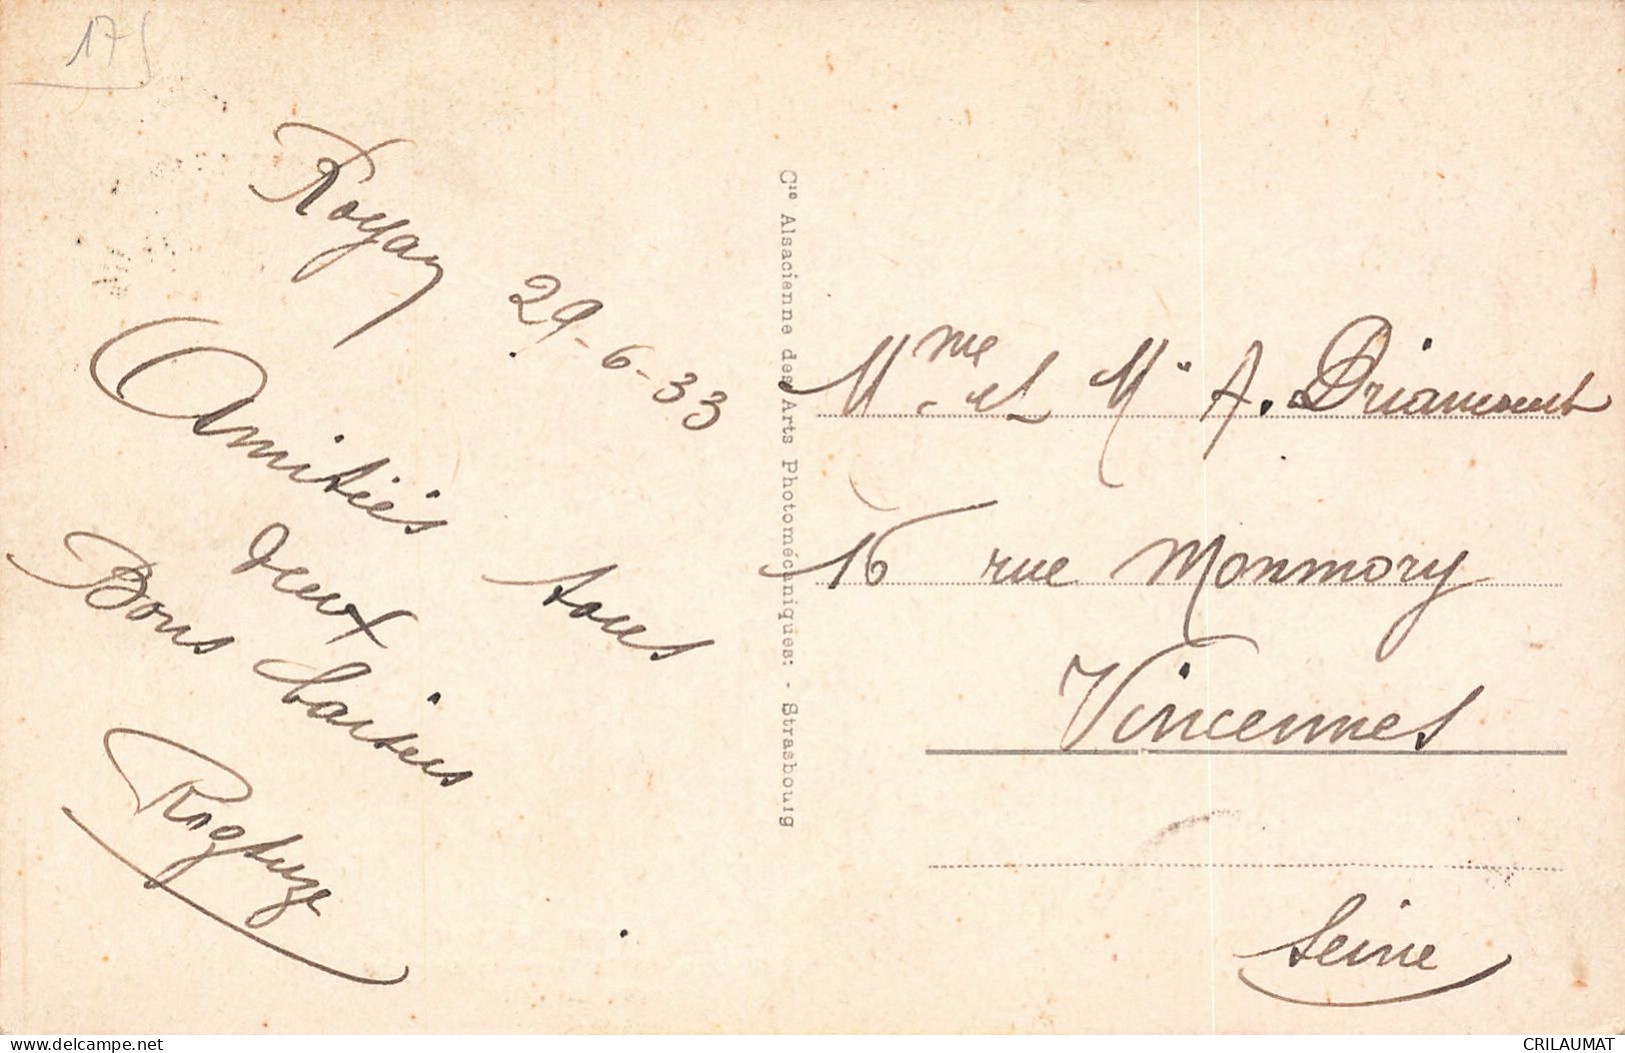 175
Royan
29-6-33
Amitiés tous
deux
Bons baisers
Cie Alsacienne des Arts Photomécaniques: - Strasbourg
Mme et Mr A. Driancourt
16 rue Monmory
Vincennes
Seine
delcampe.net
CRILAUMAT